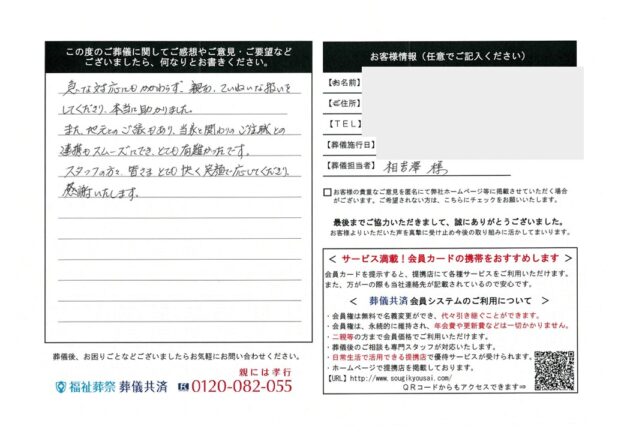 この度のご葬儀に関してご感想やご意見・ご要望など
ございましたら、何なりとお書きください。
急な対応にもかかわらず、親切、ていねいな扱いを
してくださり、本当に助かりました。
また、地元とのご縁もあり、当家と関わりのご住職との
連携もスムーズにでき、とても有難かったです。
スタッフの方々、皆さまとても快く笑顔で応じてくださり、
感謝いたします。
葬儀後、お困りごとなどございましたらお気軽にお問い合わせください。
親には孝行
福祉葬祭 葬儀共済 0120-082-055
お客様情報（任意でご記入ください）
【お名前】
【ご住所】
【TEL】
【葬儀施行日】
【葬儀担当者】 相吉澤 様
お客様の貴重なご意見を匿名にて弊社ホームページ等に掲載させていただく場合
がございます。ご希望されない方は、こちらにチェックをお願いいたします。
最後までご協力いただきまして、誠にありがとうございました。
お客様よりいただいた声を真摯に受け止め今後の取り組みに活かしてまいります。
＜ サービス満載！会員カードの携帯をおすすめします ＞
会員カードを提示すると、提携店にて各種サービスをご利用いただけます。
また、万が一の際も当社連絡先が記載されているので安心です。
＜ 葬儀共済 会員システムのご利用について ＞
・会員権は無料で名義変更ができ、代々引き継ぐことができます。
・会員権は、永続的に維持され、年会費や更新費などは一切かかりません。
・二親等の方まで会員価格でご利用いただけます。
・葬儀後のご相談も専門スタッフが対応いたします。
・日常生活で活用できる提携店で優待サービスが受けられます。
・ホームページで提携店を掲載しております。
【URL】http://www.sougikyousai.com/
QRコードからもアクセスできます⇒